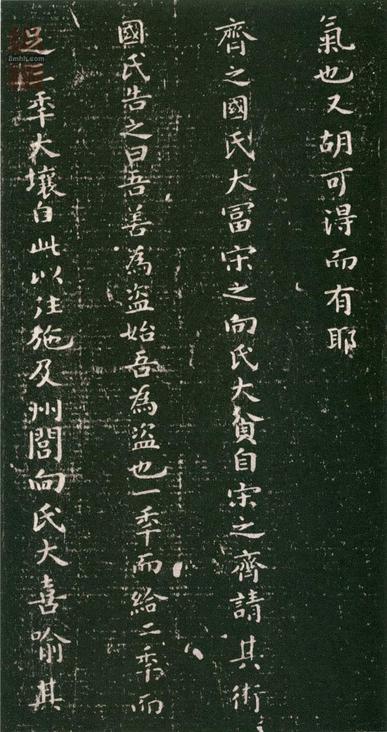 氣也又胡可得而有耶
齊之國氏大冨宋之向氏大貧自宋之齊請其術
國氏告之曰吾善為盗始吾為盗也一秊而給二秊而
足三秊大壤自此以往施及州閭向氏大喜喻其
8mhh.com